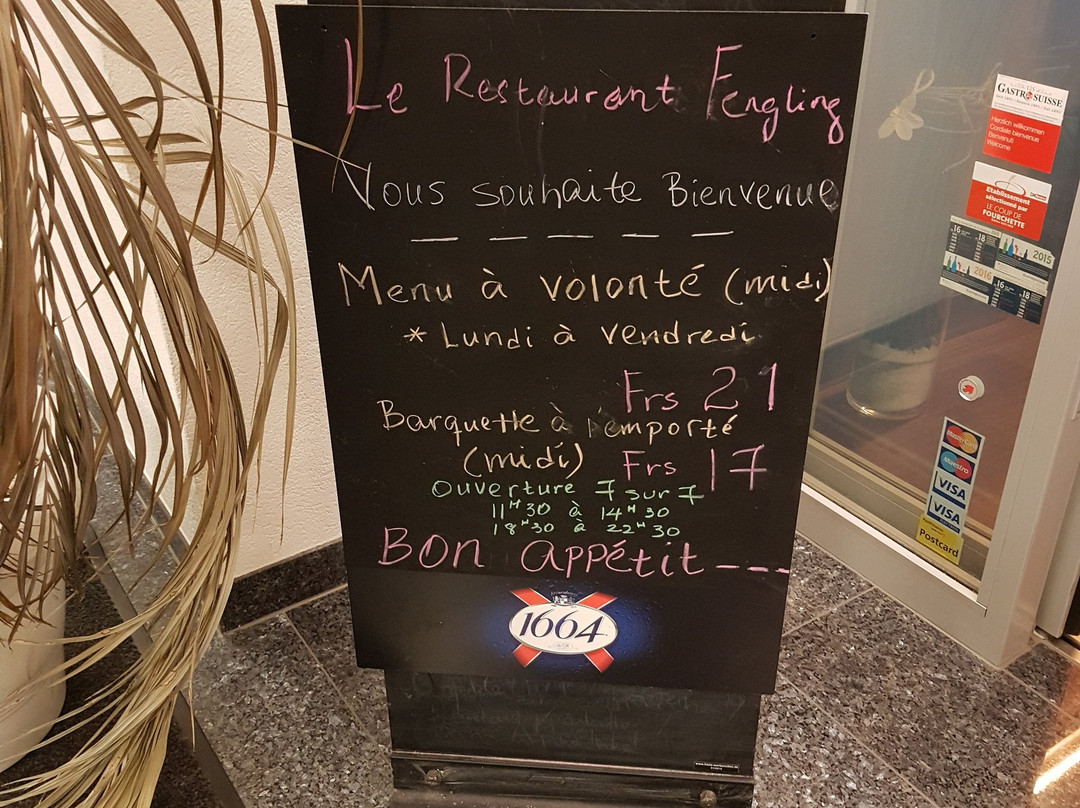 Le Restaurant Fengling
Vous souhaite Bienvenue
Menu à volonté (midi)
* Lundi à vendredi
Frs 21
Barquette à l'emporté
(midi) Frs 17
Ouverture 7 sur 7
11H30 à 14H30
18H30 à 22H30
Bon appétit---
1664
GASTROSUISSE
Herzlich willkommen
Cordiale bienvenue
Benvenuti
Welcome
Etablissement
sélectionné par
LE COUP DE
FOURCHETTE
16 18 2015
2016 16 18
MasterCard
Maestro
VISA
VISA
Postcard